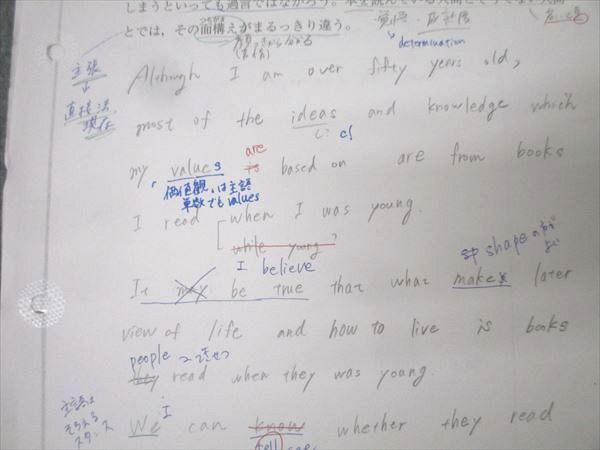 しまうといっても過言ではなかろう。本を読んでいる人間とそうでない人間
とでは、その面構えがまるっきり違う。
determination
主張
↓
直接法
現在
Although I am over fifty years old,
most of the ideas and knowledge which
c!
are
my values is based on are from books
価値観は主語
単数でもvalues
I read when I was young.
while young?
I believe
shapeの方が
よい
It may be true that what makes later
view of life and how to live is books
people
they read when they was young.
主語は
そろえる
スタンス
I
We can know whether they read
tell